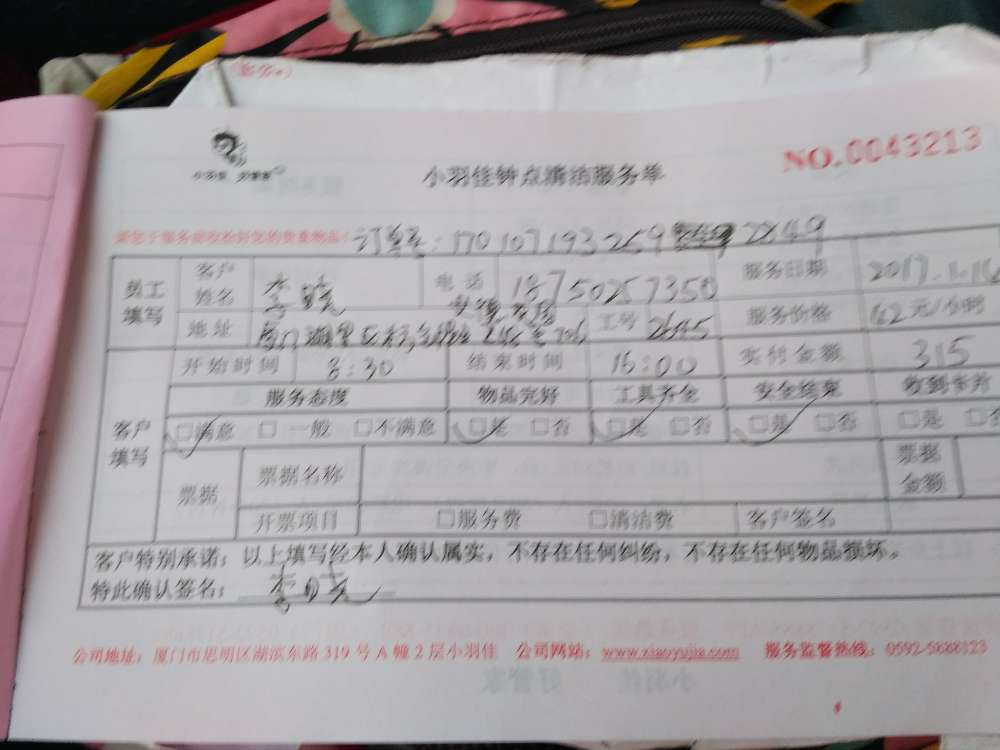 小羽佳
小羽佳钟点清洁服务单
NO.0043213
订单号：170107193259 2849
员工填写 客户姓名 李晓 电话 18750257350 服务日期 2017.1.16
地址 工号 2645 服务价格 元/小时
开始时间 8:30 结束时间 16:00 实付金额 315
客户填写 服务态度 物品完好 工具齐全 安全结束 收到卡片
□满意 □一般 □不满意 □是 □否 □是 □否 □是 □否 □是 □否
票据 票据名称 票据金额
开票项目 □服务费 □清洁费 客户签名
客户特别承诺：以上填写经本人确认属实，不存在任何纠纷，不存在任何物品损坏。
特此确认签名： 李晓
公司地址：厦门市思明区湖滨东路 319 号 A 幢 2 层小羽佳 公司网站：www.xiaoyujia.com 服务监督热线：0592-5888123